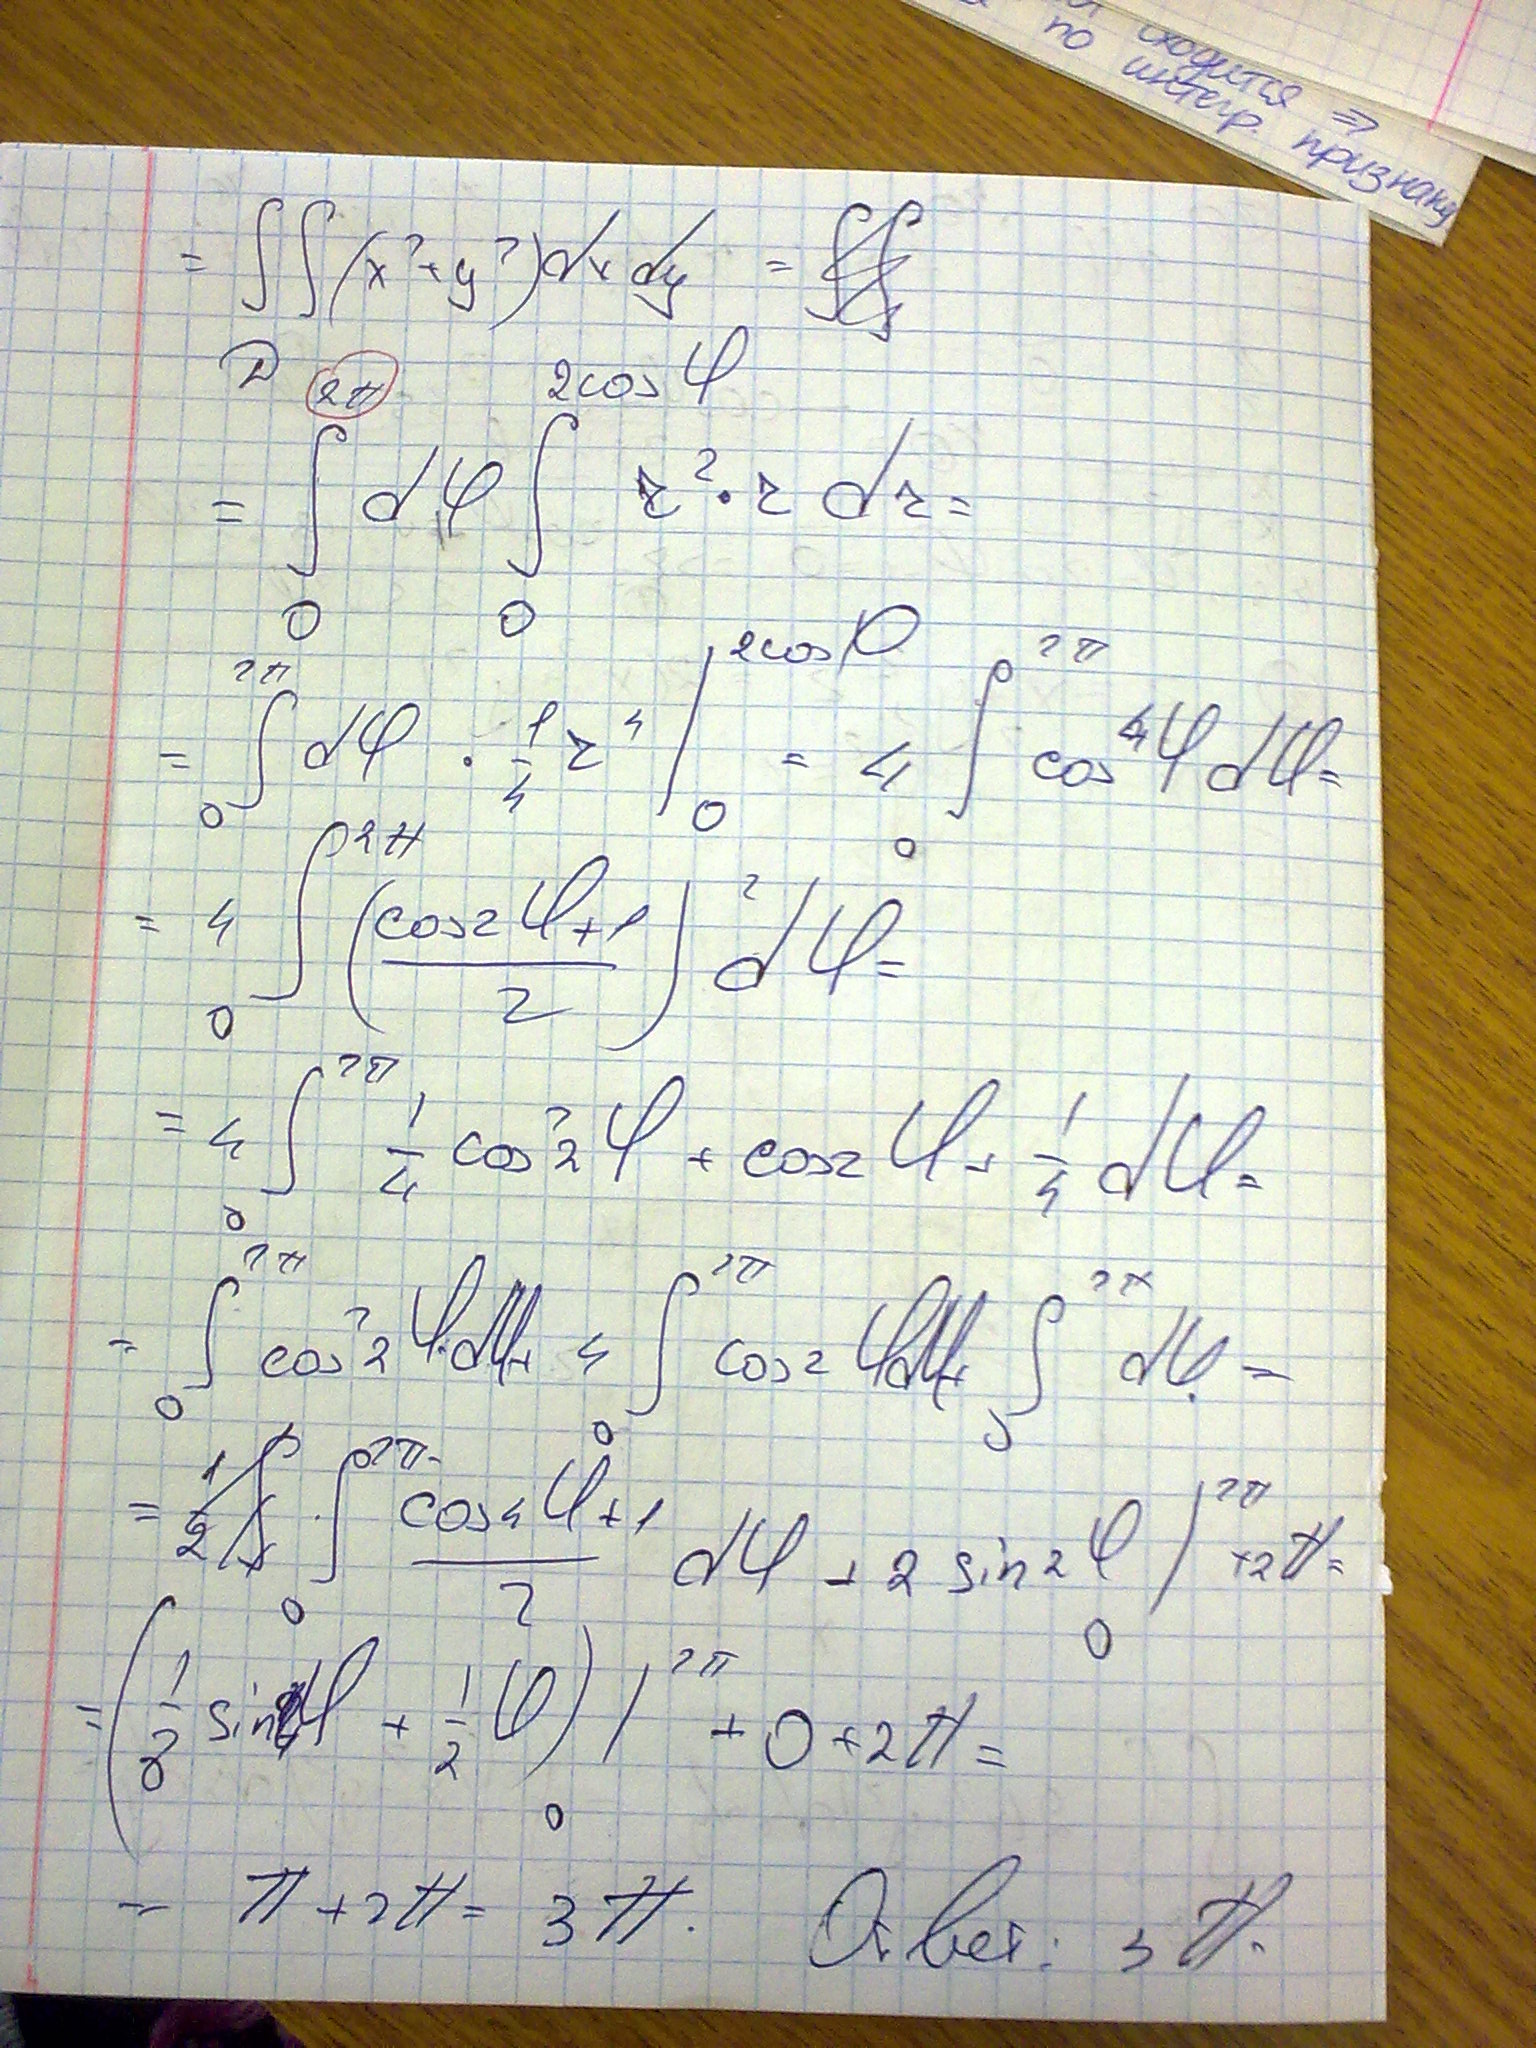 сходится ⇒
по интегр. признаку
= ∫∫ (x²+y²)dx dy =
D
= ∫₀^{2π} dφ ∫₀^{2cosφ} r²·r dr =
= ∫₀^{2π} dφ · 1/4 r⁴ |₀^{2cosφ} = 4 ∫₀^{2π} cos⁴φ dφ =
= 4 ∫₀^{2π} ((cos2φ+1)/2)² dφ =
= 4 ∫₀^{2π} 1/4 cos²2φ + cos2φ + 1/4 dφ =
= ∫₀^{2π} cos²2φ dφ + 4 ∫₀^{2π} cos2φ dφ + ∫₀^{2π} dφ =
= ∫₀^{2π} (cos4φ+1)/2 dφ + 2 sin2φ |₀^{2π} + 2π =
= (1/8 sin4φ + 1/2 φ) |₀^{2π} + 0 + 2π =
= π + 2π = 3π. Ответ: 3π.